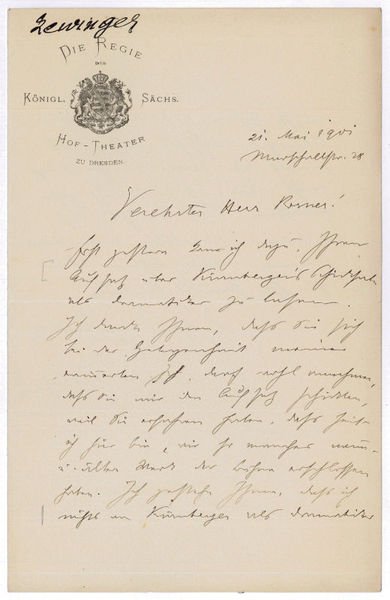 Zewinger
DIE REGIE
DER
KÖNIGL. SÄCHS.
HOF-THEATER
ZU DRESDEN.
21. Mai 1901
Marschallstr. 28
Verehrter Herr Rosner!
Erst gestern kam ich dazu, Ihren
Aufsatz über Kürnbergers Schicksale
als Dramatiker zu lesen.
Ich danke Ihnen, daß Sie sich
bei der Gelegenheit meiner
erinnerten u. darf wohl annehmen,
daß Sie mir den Aufsatz schickten,
weil Sie erfahren haben, daß seit
ich hier bin, wir so manches neue
u. ältere Werk der Bühne erschlossen
haben. Ich gestehe Ihnen, daß ich
nichts von Kürnberger als Dramatiker